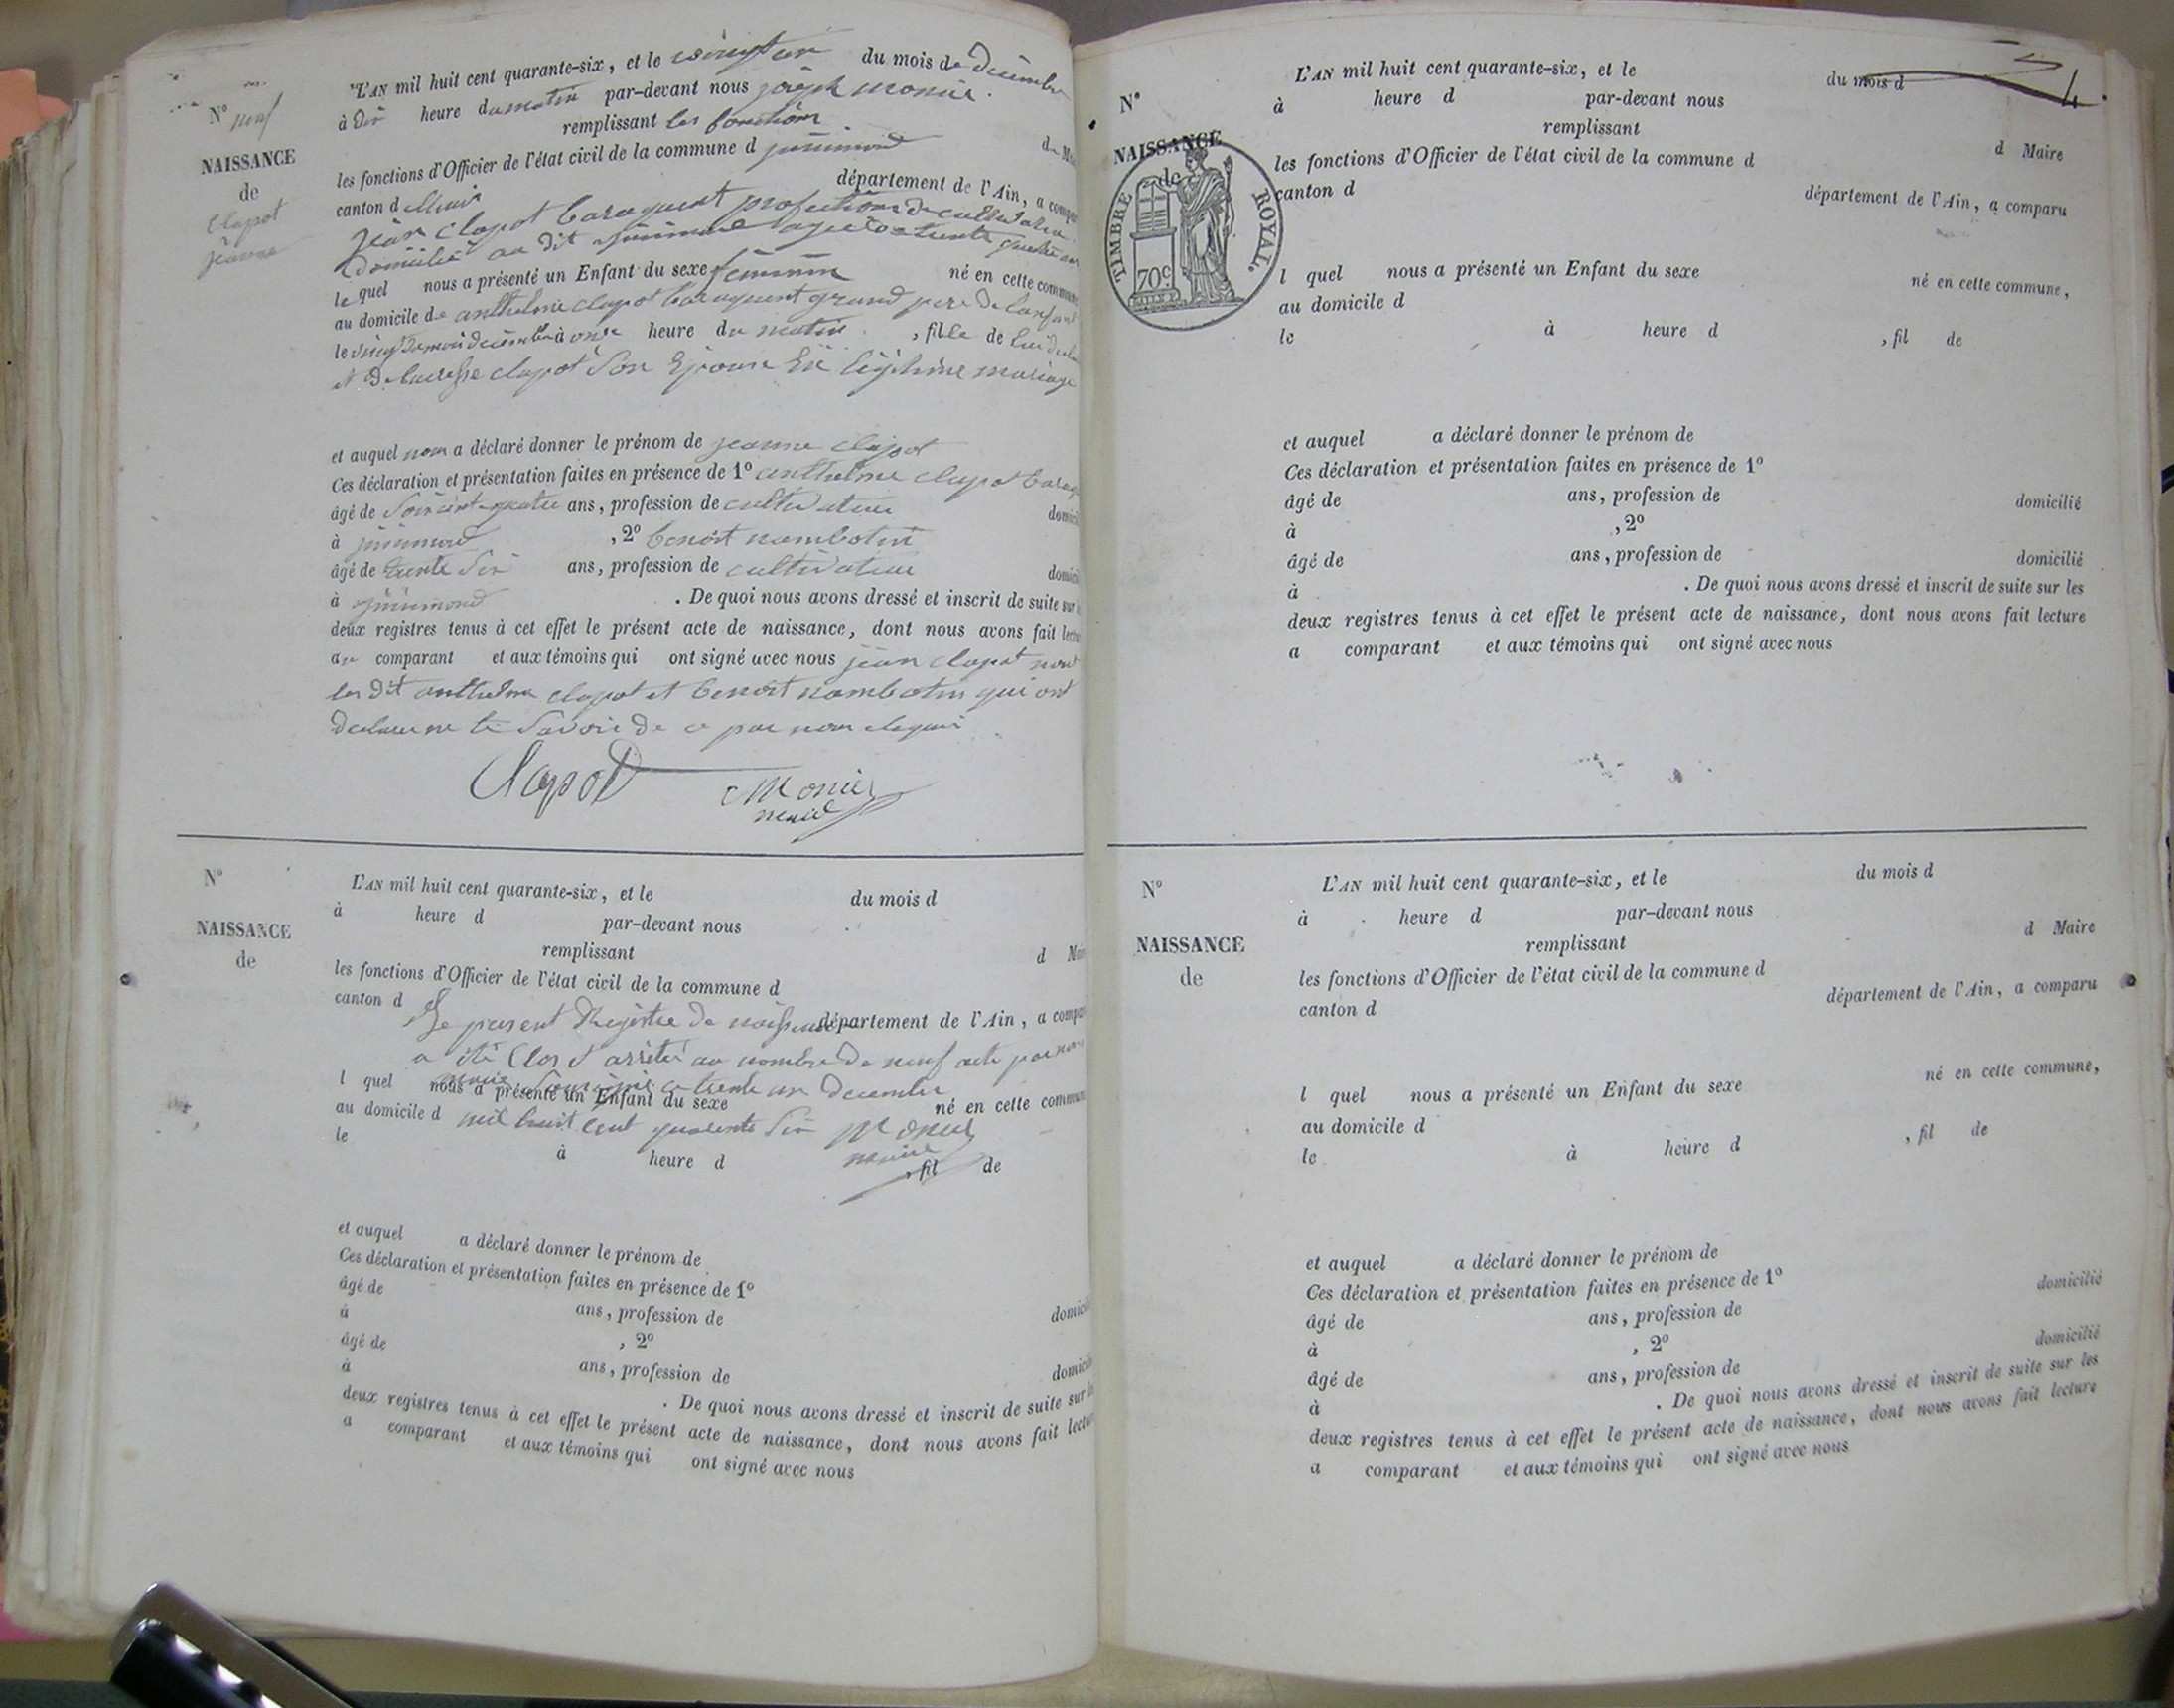 N° neuf
NAISSANCE
de
Clapot
jeanne
L'AN mil huit cent quarante-six, et le vingt un du mois de Décembre
à Dix heure du matin par-devant nous joseph monier
remplissant les fonctions
les fonctions d'Officier de l'état civil de la commune d
canton d département de l'Ain, a compa
jean Clapot baraquent profection de cultivateur
domicilié au dit agé de trente quatre ans
le quel nous a présenté un Enfant du sexe féminin né en cette commune
au domicile de anthelme clapot baraquent grand pere de l'enfant
le vingt du mois décembre à onze heure du matin, fille de lui
et de clapot Son Epouse En légitime mariage
et auquel nous a déclaré donner le prénom de jeanne clapot
Ces déclaration et présentation faites en présence de 1° anthelme clapot
âgé de Soixante quatre ans, profession de cultivateur domicil
à , 2° benoit nambotin
âgé de trente Six ans, profession de cultivateur domicil
à . De quoi nous avons dressé et inscrit de suite sur
deux registres tenus à cet effet le présent acte de naissance, dont nous avons fait lectu
au comparant et aux témoins qui ont signé avec nous jean clapot non
les dit anthelme clapot et benoit nambotin qui ont
declaré ne le Savoir de ce par nous
Clapot Monier
maire
N°
NAISSANCE
de
L'AN mil huit cent quarante-six, et le du mois d
à heure d par-devant nous
remplissant d Mai
les fonctions d'Officier de l'état civil de la commune d
canton d département de l'Ain, a compa
Le present Registre de naissance
a été Clos et arrêté au nombre de neuf acte par nous
l quel nous a présenté un Enfant du sexe né en cette commun
maire Soussigné ce trente un Decembre
au domicile d mil huit cent quarente Six Monier
maire
le à heure d , fil de
et auquel a déclaré donner le prénom de
Ces déclaration et présentation faites en présence de 1°
âgé de ans, profession de domicil
à , 2°
âgé de ans, profession de domicil
à . De quoi nous avons dressé et inscrit de suite sur
deux registres tenus à cet effet le présent acte de naissance, dont nous avons fait lectu
a comparant et aux témoins qui ont signé avec nous
4
N°
NAISSANCE
de
TIMBRE ROYAL.
70c
L'AN mil huit cent quarante-six, et le du mois d
à heure d par-devant nous
remplissant d Maire
les fonctions d'Officier de l'état civil de la commune d
canton d département de l'Ain, a comparu
l quel nous a présenté un Enfant du sexe né en cette commune,
au domicile d
le à heure d , fil de
et auquel a déclaré donner le prénom de
Ces déclaration et présentation faites en présence de 1°
âgé de ans, profession de domicilié
à , 2°
âgé de ans, profession de domicilié
à . De quoi nous avons dressé et inscrit de suite sur les
deux registres tenus à cet effet le présent acte de naissance, dont nous avons fait lecture
a comparant et aux témoins qui ont signé avec nous
N°
NAISSANCE
de
L'AN mil huit cent quarante-six, et le du mois d
à heure d par-devant nous
remplissant d Maire
les fonctions d'Officier de l'état civil de la commune d
canton d département de l'Ain, a comparu
l quel nous a présenté un Enfant du sexe né en cette commune,
au domicile d
le à heure d , fil de
et auquel a déclaré donner le prénom de
Ces déclaration et présentation faites en présence de 1°
âgé de ans, profession de domicilié
à , 2°
âgé de ans, profession de domicilié
à . De quoi nous avons dressé et inscrit de suite sur les
deux registres tenus à cet effet le présent acte de naissance, dont nous avons fait lecture
a comparant et aux témoins qui ont signé avec nous